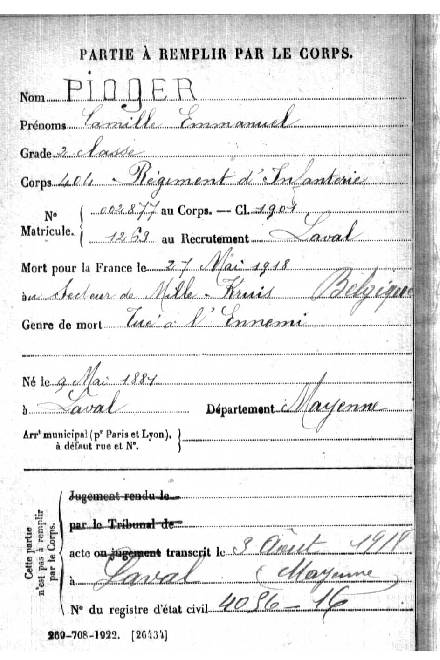 PARTIE À REMPLIR PAR LE CORPS.
Nom PIOGER
Prénoms Camille Emmanuel
Grade 2 classe
Corps 404 - Régiment d'Infanterie
N° Matricule. 002877 au Corps. — Cl. 1901
1269 au Recrutement Laval
Mort pour la France le 27 Mai 1918
au Secteur de Mille - Kruis Belgique
Genre de mort Tué à l'Ennemi
Né le 9 Mai 1881
à Laval Département Mayenne
Arr<sup>t</sup> municipal (p<sup>r</sup> Paris et Lyon),
à défaut rue et N°.
Cette partie
n'est pas à remplir
par le Corps.
Jugement rendu le
par le Tribunal de
acte ou jugement transcrit le 3 Août 1918
à Laval (Mayenne)
N° du registre d'état civil 4056-16
269-708-1922. [26434]